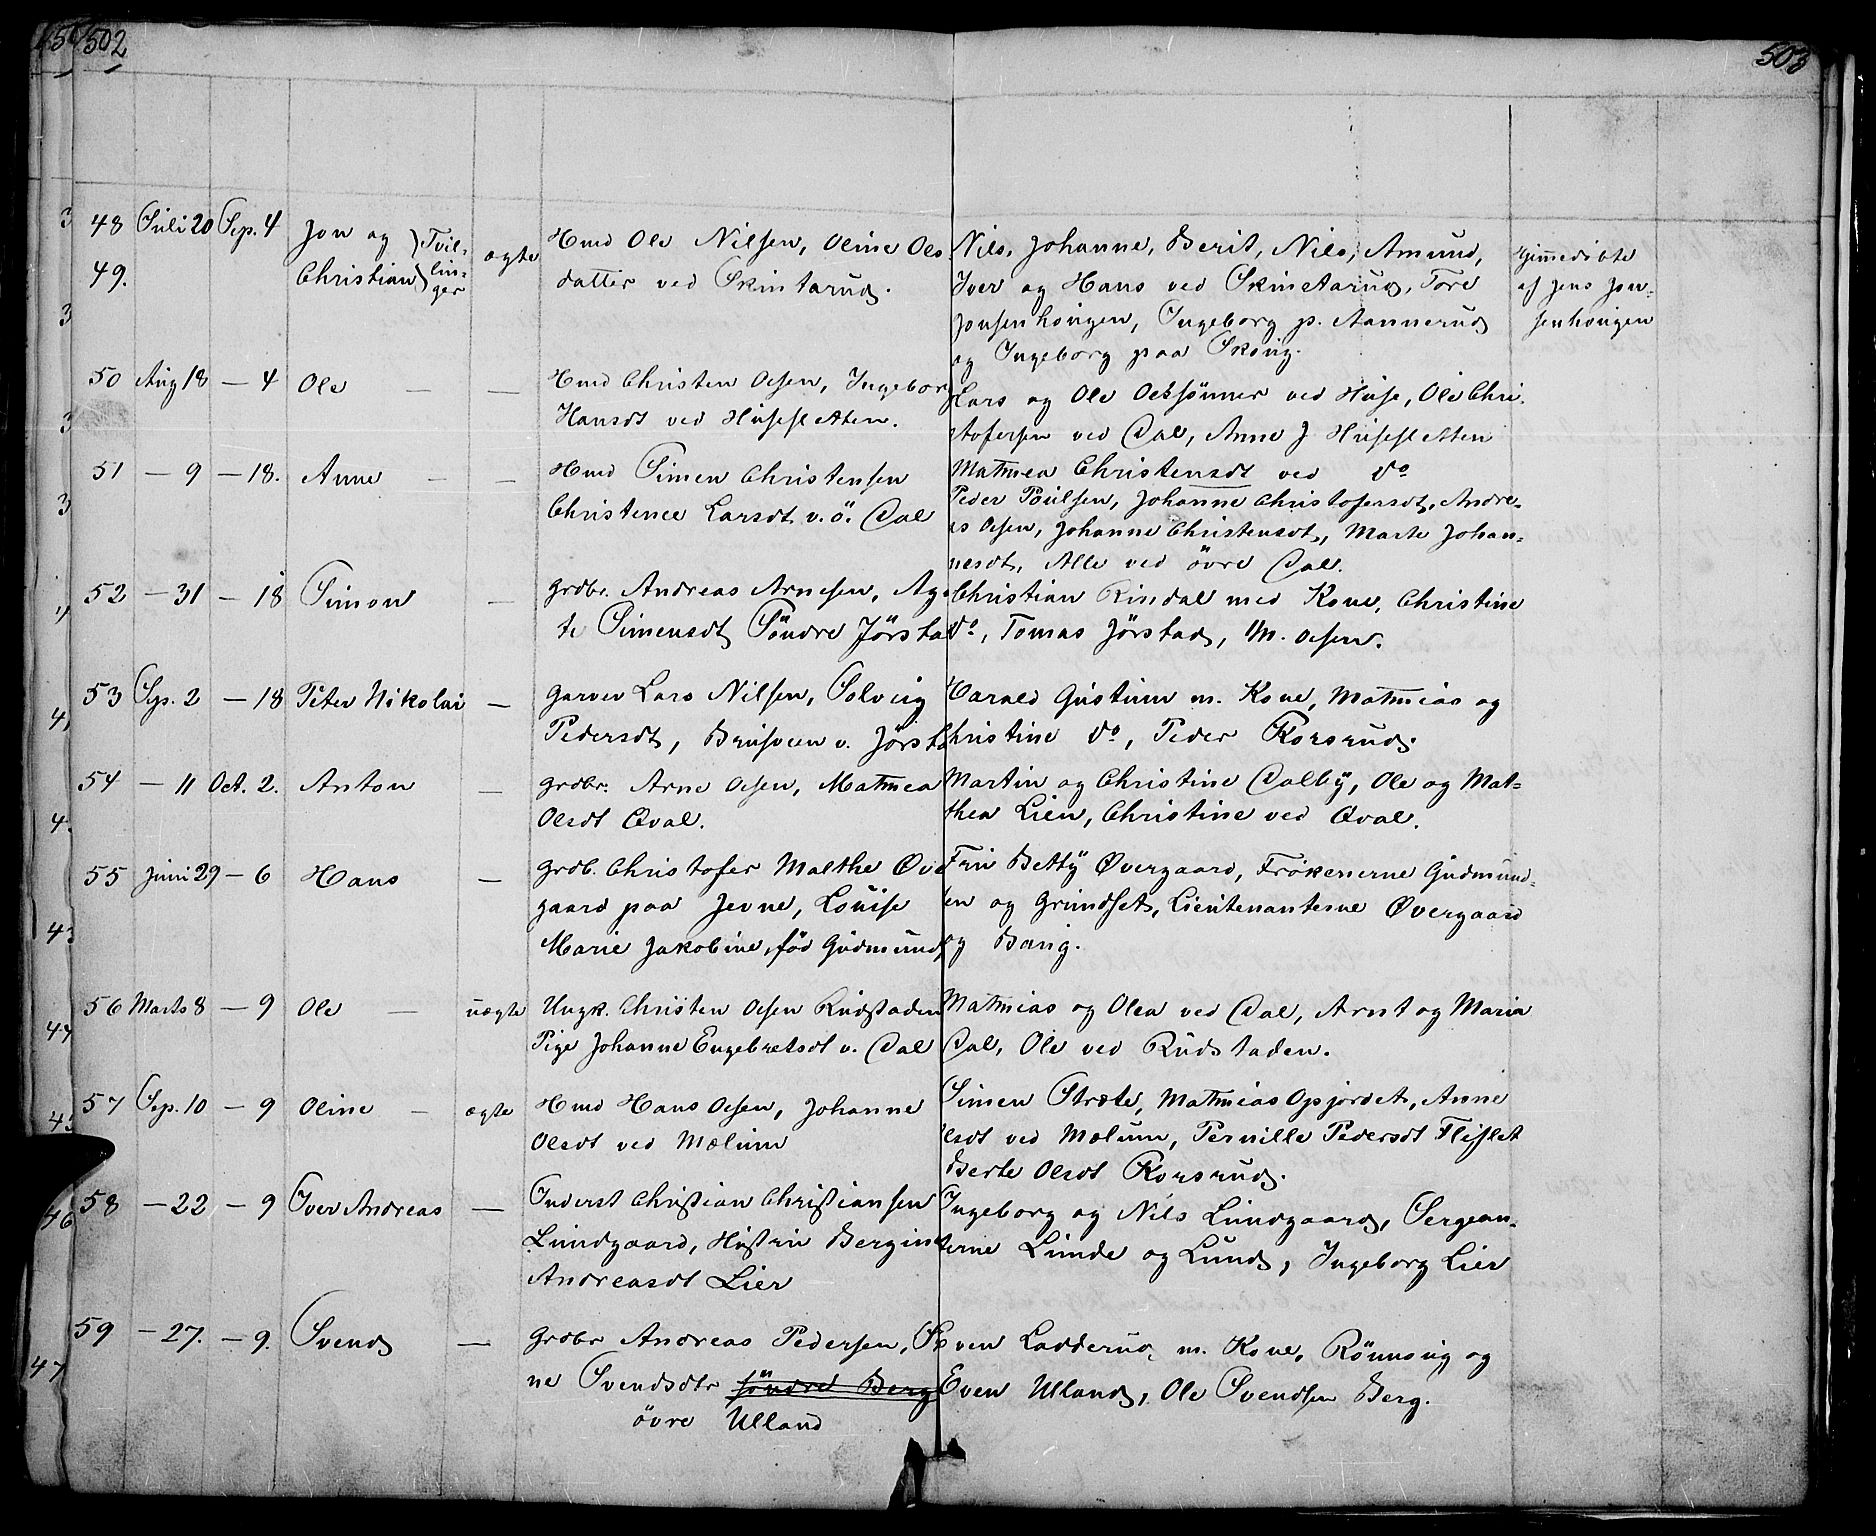 502
503
48 Juli 20 Sep. 4 Jon og } Tvil- ægte Hmd Ole Nilsen, Oline Ols- Nils, Johanne, Berit, Nils, Amund, Hjemmedøbte
49. Christian } lin- datter ved Skintarud. Iver og Hans ved Skintarud, Tore af Jens Jon-
ger Jonsenhougen, Ingeborg p. Aannerud senhougen
og Ingeborg paa Skoug.
50 Aug 18 — 4 Ole — — Hmd Christen Olsen, Ingeborg Lars og Ole Olssönner ved Huse, Ole Chri-
Hansdt ved Husesletten. stofersen ved Dal, Anne J Husesletten
51 — 9 — 18. Anne — — Hmd Simen Christensen Mathea Christensdt ved do
Christence Larsdt v. ö. Dal Peder Poulsen, Johanne Christofersdt, Andre-
as Olsen, Johanne Christensdt, Marte Johan-
nesdt, Alle ved övre Dal.
52 — 31 — 18 Simon — grdbr. Andreas Arnesen, Aga- Christian Rindal med Kone, Christine
te Simensdt Söndre Jörstad do, Tomas Jörstad, M. Olsen.
53 Sep. 2 — 18 Peter Nikolai — garver Lars Nilsen, Solveig Harald Gustum m. Kone, Mathias og
Pedersdt, Brusveen v. Jörstad Christine do, Peder Korsrud.
54 — 11 Oct. 2. Anton — grdbr. Arne Olsen, Mathea Martin og Christine Dalby, Ole og Mat-
Olsdt Qval. thea Lien, Christine ved Qval.
55 Juni 29 — 6 Hans — grdb. Christofer Malthe Øver Fru Betty Øvergaard, Frökenerne Gudmund-
gaard paa Jevne, Louise sen og Grundset, Lieutenanterne Øvergaard
Marie Jakobine, fød Gudmunds og Bang.
56 Marts 8 — 9 Ole — uægte Ungk. Christen Olsen Rudstaden Mathias og Olea ved Dal, Arnt og Maria
Pige Johanne Engebretsdt v. Dal Dal, Ole ved Rudstaden.
57 Sep. 10 — 9 Oline — ægte Hmd Hans Olsen, Johanne Simen Stræte, Mathias Opjordet, Anne
Olsdt ved Mælum Olsdt ved Mælum, Pernille Pedersdt Fliflet
Berte Olsdt Korsrud.
58 — 22 — 9 Iver Andreas — Inderst Christian Christiansen Ingeborg og Nils Lundgaard, Sergean-
Lundgaard, Hustru Bergine terne Lunde og Lund, Ingeborg Lier
Andreasdt Lier
59 — 27. — 9. Svend — grdbr Andreas Pedersen, Even Ladderud m. Kone, Rönnoug og
ne Svendsdtr söndre Berg Even Ulland, Ole Svendsen Berg.
övre Ulland